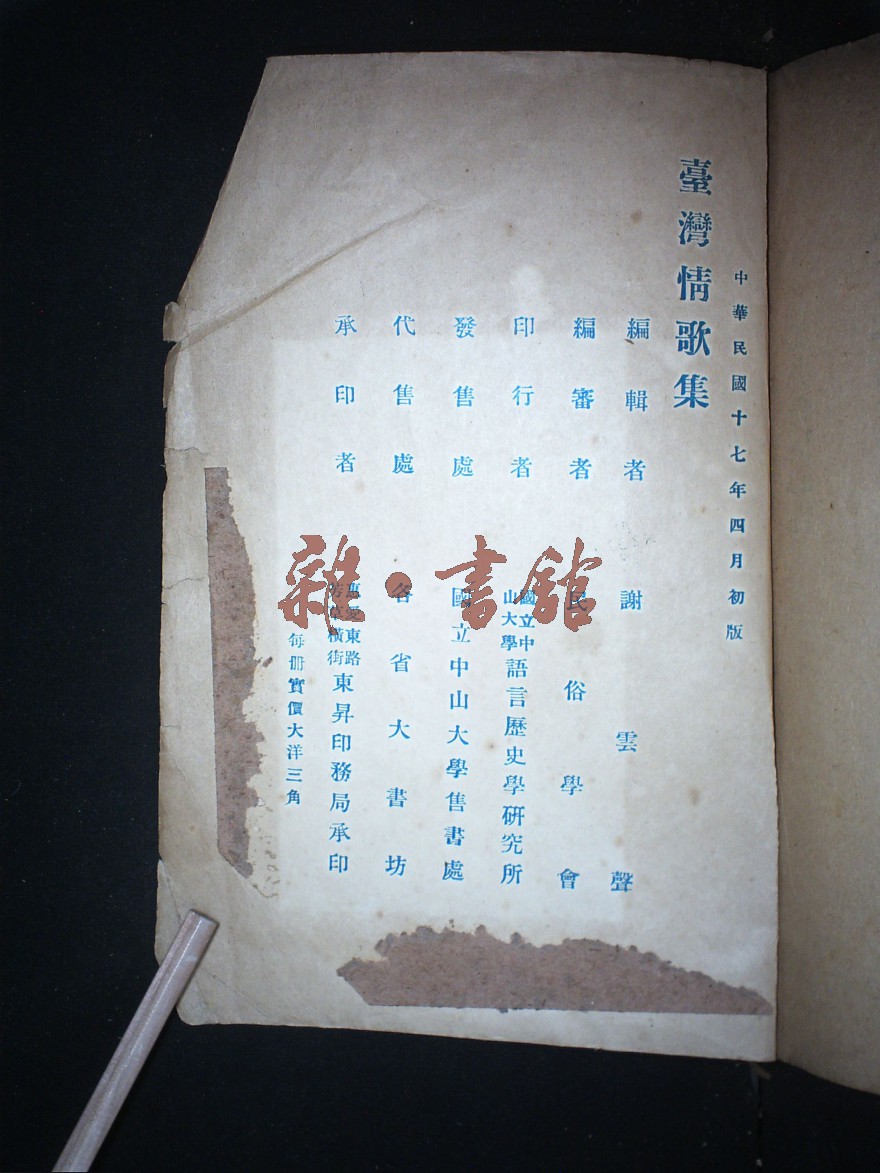 中華民國十七年四月初版
臺灣情歌集
編輯者 謝雲聲
編審者 民俗學會
印行者 國立中山大學語言歷史學研究所
發售處 國立中山大學售書處
代售處 各省大書坊
承印者 惠愛東路芳草橫街東昇印務局承印
每册實價大洋三角
雜·書館